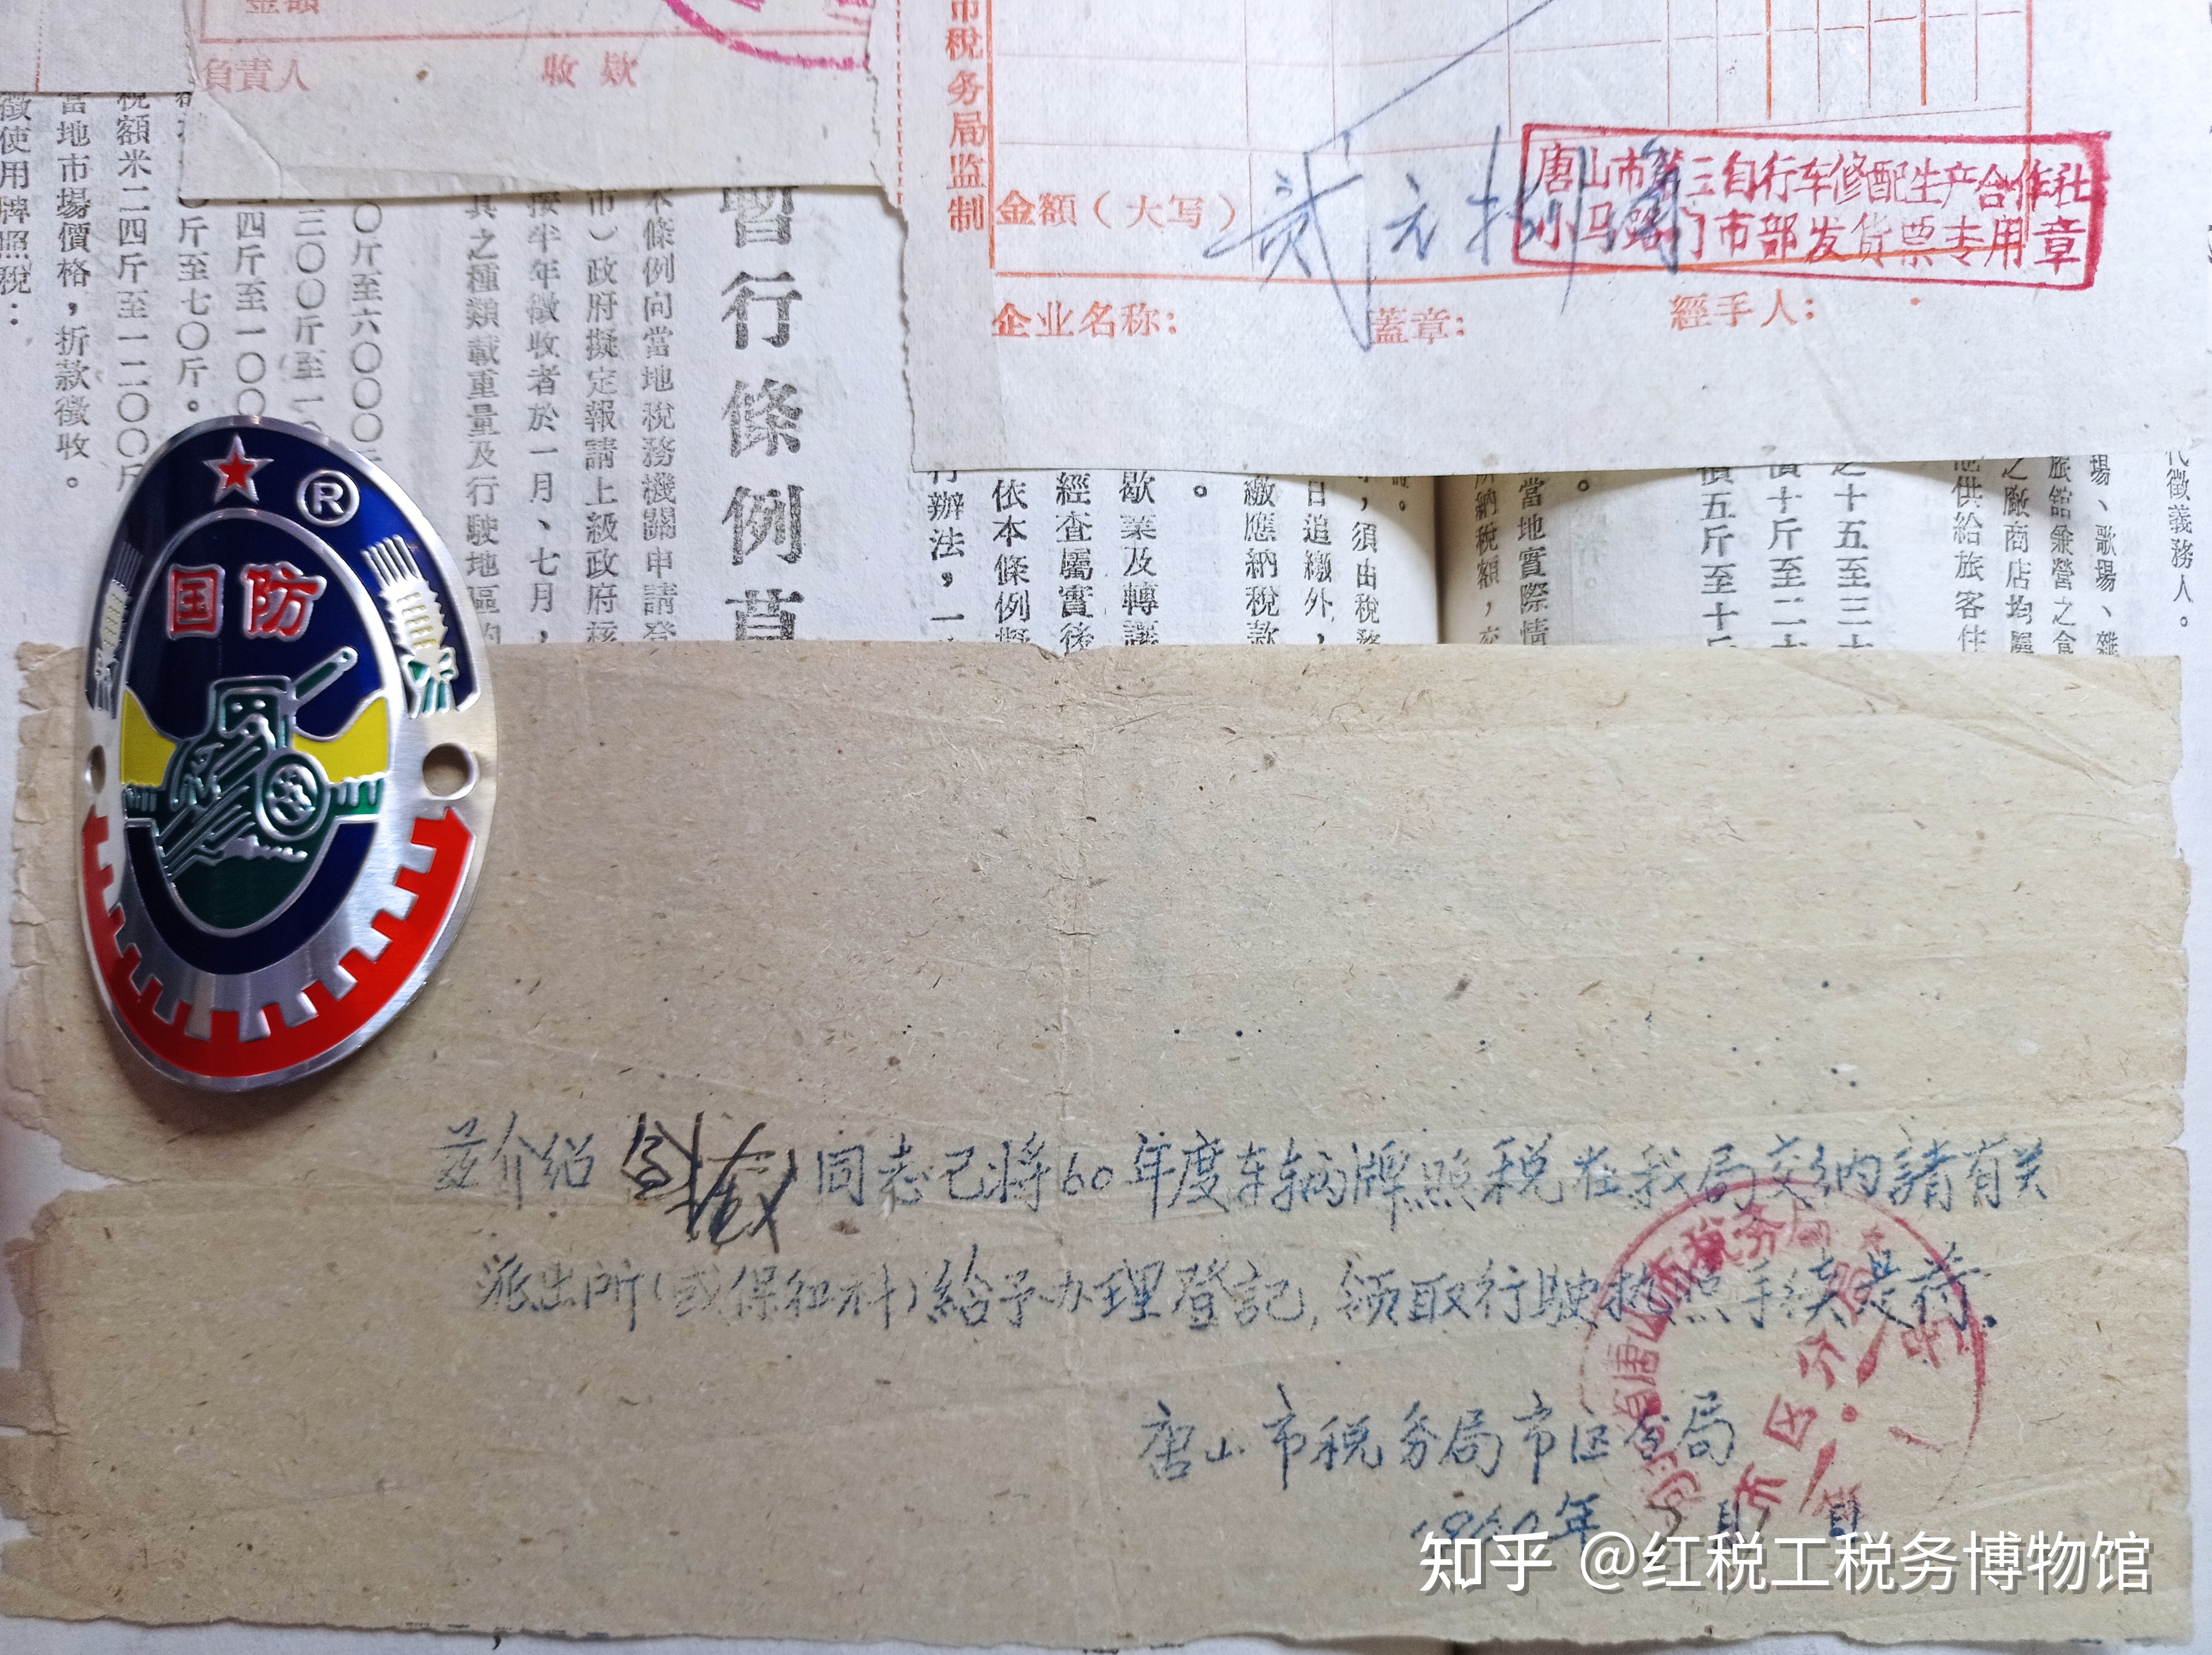 金額
負責人 收款
市税务局监制
金額（大写） 贰元捌角
唐山市第三自行车修配生产合作社
小马路门市部发货票专用章
企业名称： 蓋章： 經手人：
代徵義務人。
場、歌場、雜
旅館兼營之食
之廠商店均屬
他供給旅客住
之十五至三十
價十斤至二十
價五斤至十斤
。
當地實際情
所納稅額，
，須由稅務
日追繳外，
繳應納稅款
。
歇業及轉讓
經查屬實後
依本條例擬
行辦法，一
暫行條例草
本條例向當地稅務機關申請登
市）政府擬定報請上級政府核
按半年徵收者於一月、七月，
具之種類載重量及行駛地區的
〇斤至六〇〇〇斤
三〇〇斤至一〇〇
四斤至一〇〇
〇斤至七〇斤。
稅額米二四斤至一二〇〇斤
當地市場價格，折款徵收。
徵使用牌照稅：
®
国防
茲介绍 同志已将60年度车辆牌照税在我局交纳請有关
派出所（或保卫科）給予办理登記，领取行驶执照手续是荷。
唐山市税务局市区分局
1960年 5月 日
省唐山市税务局
市区分局
知乎 @红税工税务博物馆